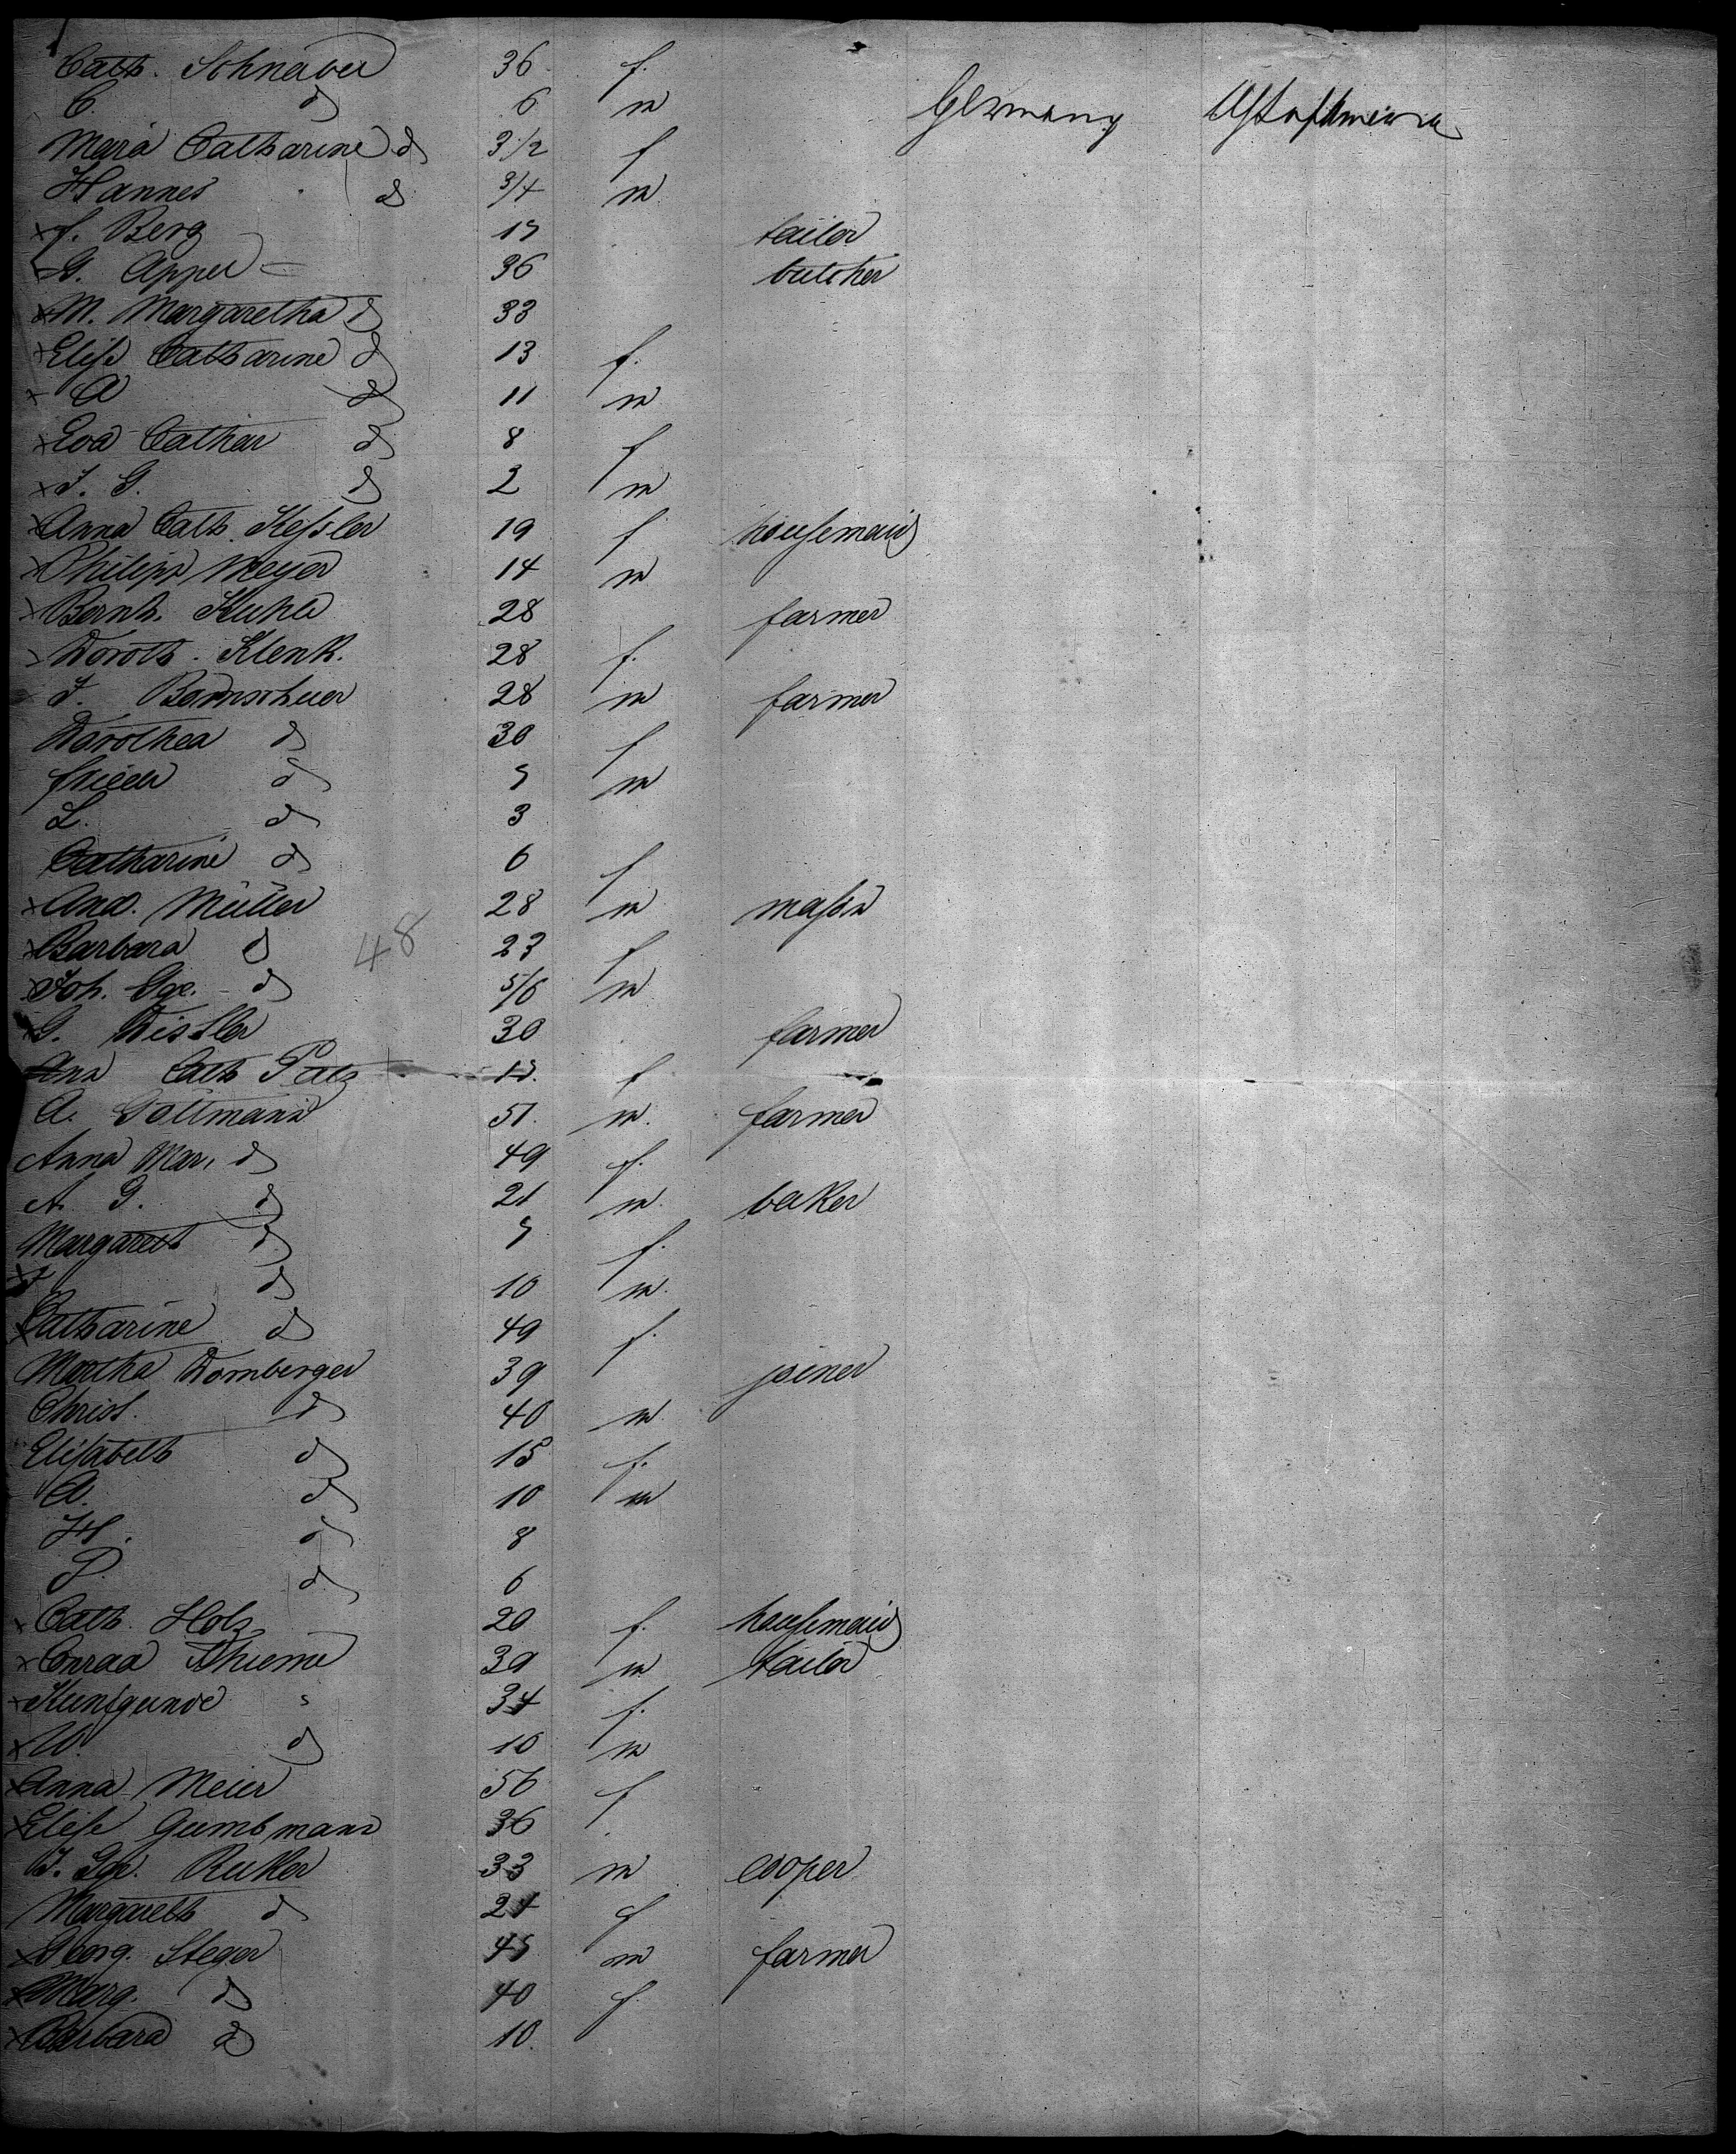 Cath. Schnabel 36 f.
C. do 6 m Germany U St of America
Maria Catharine do 3 1/2 f
Hannes do 3/4 m
x J. Berg 19 tailor
x G. Appel 36 butcher
x M. Margaretha do 33
x Elise Catharine do 13 f.
x A do 11 m
x Eva Cathar do 8 f
x J. G. do 2 m
x Anna Cath. Kessler 19 f housemaid
x Philipp Meyer 14 m
x Bernh. Kuhle 28 farmer
x Doroth. Klenk. 28 f.
x J. Bornscheuer 28 m farmer
Dorothea do 30 f
frieda do 9 m
L. do 3
Catharine do 6 f
x And. Müller 28 m mason
x Barbara do 23 f
x Joh. Gge. do 5/6 m
x G. Distler 30 farmer
Ana Cath f
A. Goltmann 51. m. farmer
Anna Mar. do 49 f.
A. G. do 21 m. baker
Margareth do 9 f.
do 10 m.
Catharine do 49 f.
Martha Dornberger 39 joiner
Christ. do 40 m.
Elisabeth do 15 f.
A. do 10 m
H. do 8
P. do 6
x Cath. Holz 20 f. housemaid
x Conrad Thieme 39 m tailor
x Kunigunde 34 f.
x W. do 10 m
x Anna Meier 56 f
x Elise Gumbmann 36
J. Gge. Ruker 33 m cooper
Margareth do 24 f
x Georg. Steger 45 m farmer
x Marg. do 40 f.
x Barbara do 10.
48